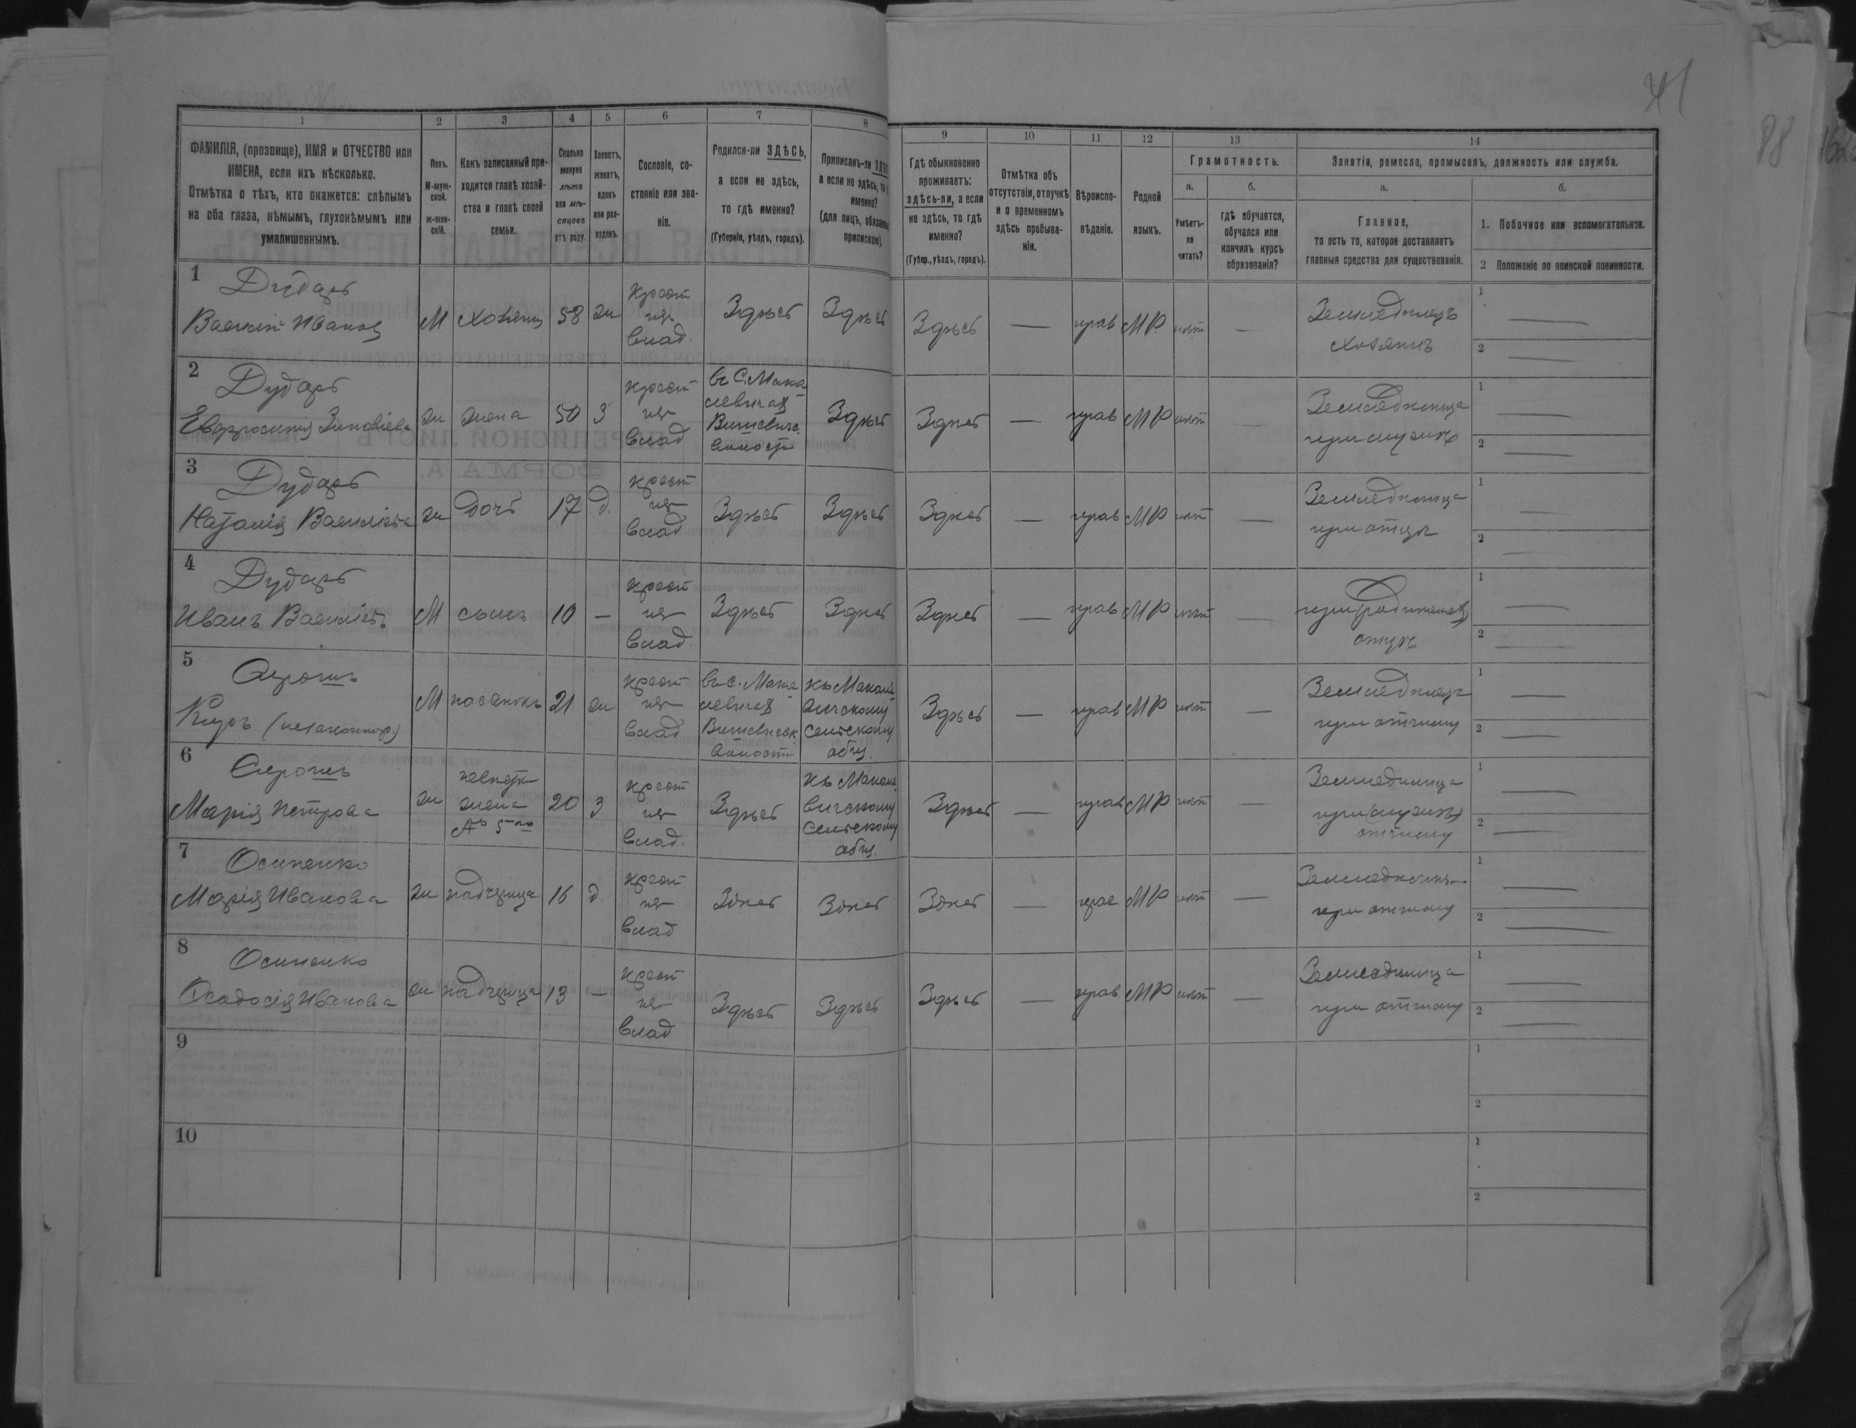 41
88
1 2 3 4 5 6 7 8 9 10 11 12 13 14
ФАМИЛІЯ, (прозвище), ИМЯ и ОТЧЕСТВО или
ИМЕНА, если ихъ нѣсколько.
Отмѣтка о тѣхъ, кто окажется: слѣпымъ
на оба глаза, нѣмымъ, глухонѣмымъ или
умалишеннымъ.
Полъ.
М-муж-
ской.
Ж-жен-
скій.
Какъ записанный при-
ходится главѣ хозяй-
ства и главѣ своей
семьи.
Сколько
минуло
лѣтъ
или мѣ-
сяцевъ
отъ роду.
Холостъ,
женатъ,
вдовъ
или раз-
веденъ.
Сословіе, со-
стояніе или зва-
ніе.
Родился-ли ЗДѢСЬ,
а если не здѣсь,
то гдѣ именно?
(Губернія, уѣздъ, городъ).
Приписанъ-ли
а если не здѣсь, то
именно?
(для лицъ,
Гдѣ обыкновенно
проживаетъ:
здѣсь-ли, а если
не здѣсь, то гдѣ
именно?
(Губер., уѣздъ, городъ).
Отмѣтка объ
отсутствіи, отлучкѣ
и о временномъ
здѣсь пребыва-
ніи.
Вѣроиспо-
вѣданіе.
Родной
языкъ.
Грамотность.
а.
Умѣетъ-
ли
читать?
б.
гдѣ обучается,
обучался или
кончилъ курсъ
образованія?
Занятія, ремесло, промыселъ, должность или служба.
а.
Главное,
то есть то, которое доставляетъ
главныя средства для существованія.
б.
1. Побочное или вспомогательное.
2 Положеніе по воинской повинности.
1 Дударь
Василій Иванов М хозяинъ 58 ж крест из влад. Здѣсь Здѣсь Здѣсь — прав МР нѣт — Земледѣлецъ хозяинъ 1 — 2 —
2 Дударь
Евфросинія Зиновіева ж жена 50 З крест из влад въ С. Мака Волость Здѣсь Здѣсь — прав МР нѣт — Земледѣлица при мужѣ 1 — 2 —
3 Дударь
Наталія Василіева ж дочь 17 д. крест из влад Здѣсь Здѣсь Здѣсь — прав МР нѣт — Земледѣлица при отцѣ 1 — 2 —
4 Дударь
Иванъ Василіевъ М сынъ 10 — крест из влад. Здѣсь Здѣсь Здѣсь — прав МР нѣт — при отцѣ 1 — 2 —
5
Киръ (незаконнор.) М пасынокъ 21 ж крест из влад въ с. Волости къ сельскому общ. Здѣсь — прав МР нѣт — Земледѣлецъ при отчиму 1 — 2 —
6
Марія Петрова ж невѣстка жена № 5го 20 З крест из влад. Здѣсь къ сельскому общ. Здѣсь — прав МР нѣт — Земледѣлица при (мужѣ) отчиму 1 — 2 —
7 Осипенко
Марія Иванова ж падчерица 16 д крест из влад Здѣсь Здѣсь Здѣсь — прав МР нѣт — при отчиму 1 — 2 —
8 Осипенко
Феодосія Иванова ж падчерица 13 — крест из влад Здѣсь Здѣсь Здѣсь — прав МР нѣт — Земледѣлица при отчиму 1 — 2 —
9 1 2
10 1 2